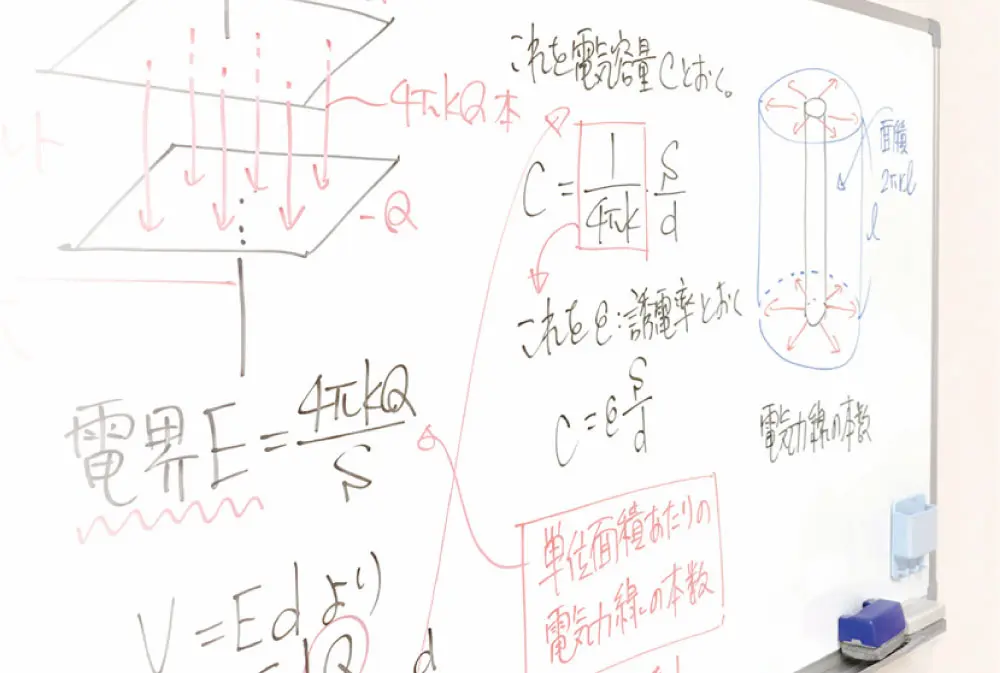 4πkQ本
-Q
電界E=4πkQ/S
V=Edより
これを電気容量Cとおく。
C=1/4πk・S/d
これをε:誘電率とおく
C=εS/d
単位面積あたりの
電気力線の本数
面積
2πrl
l
電気力線の本数